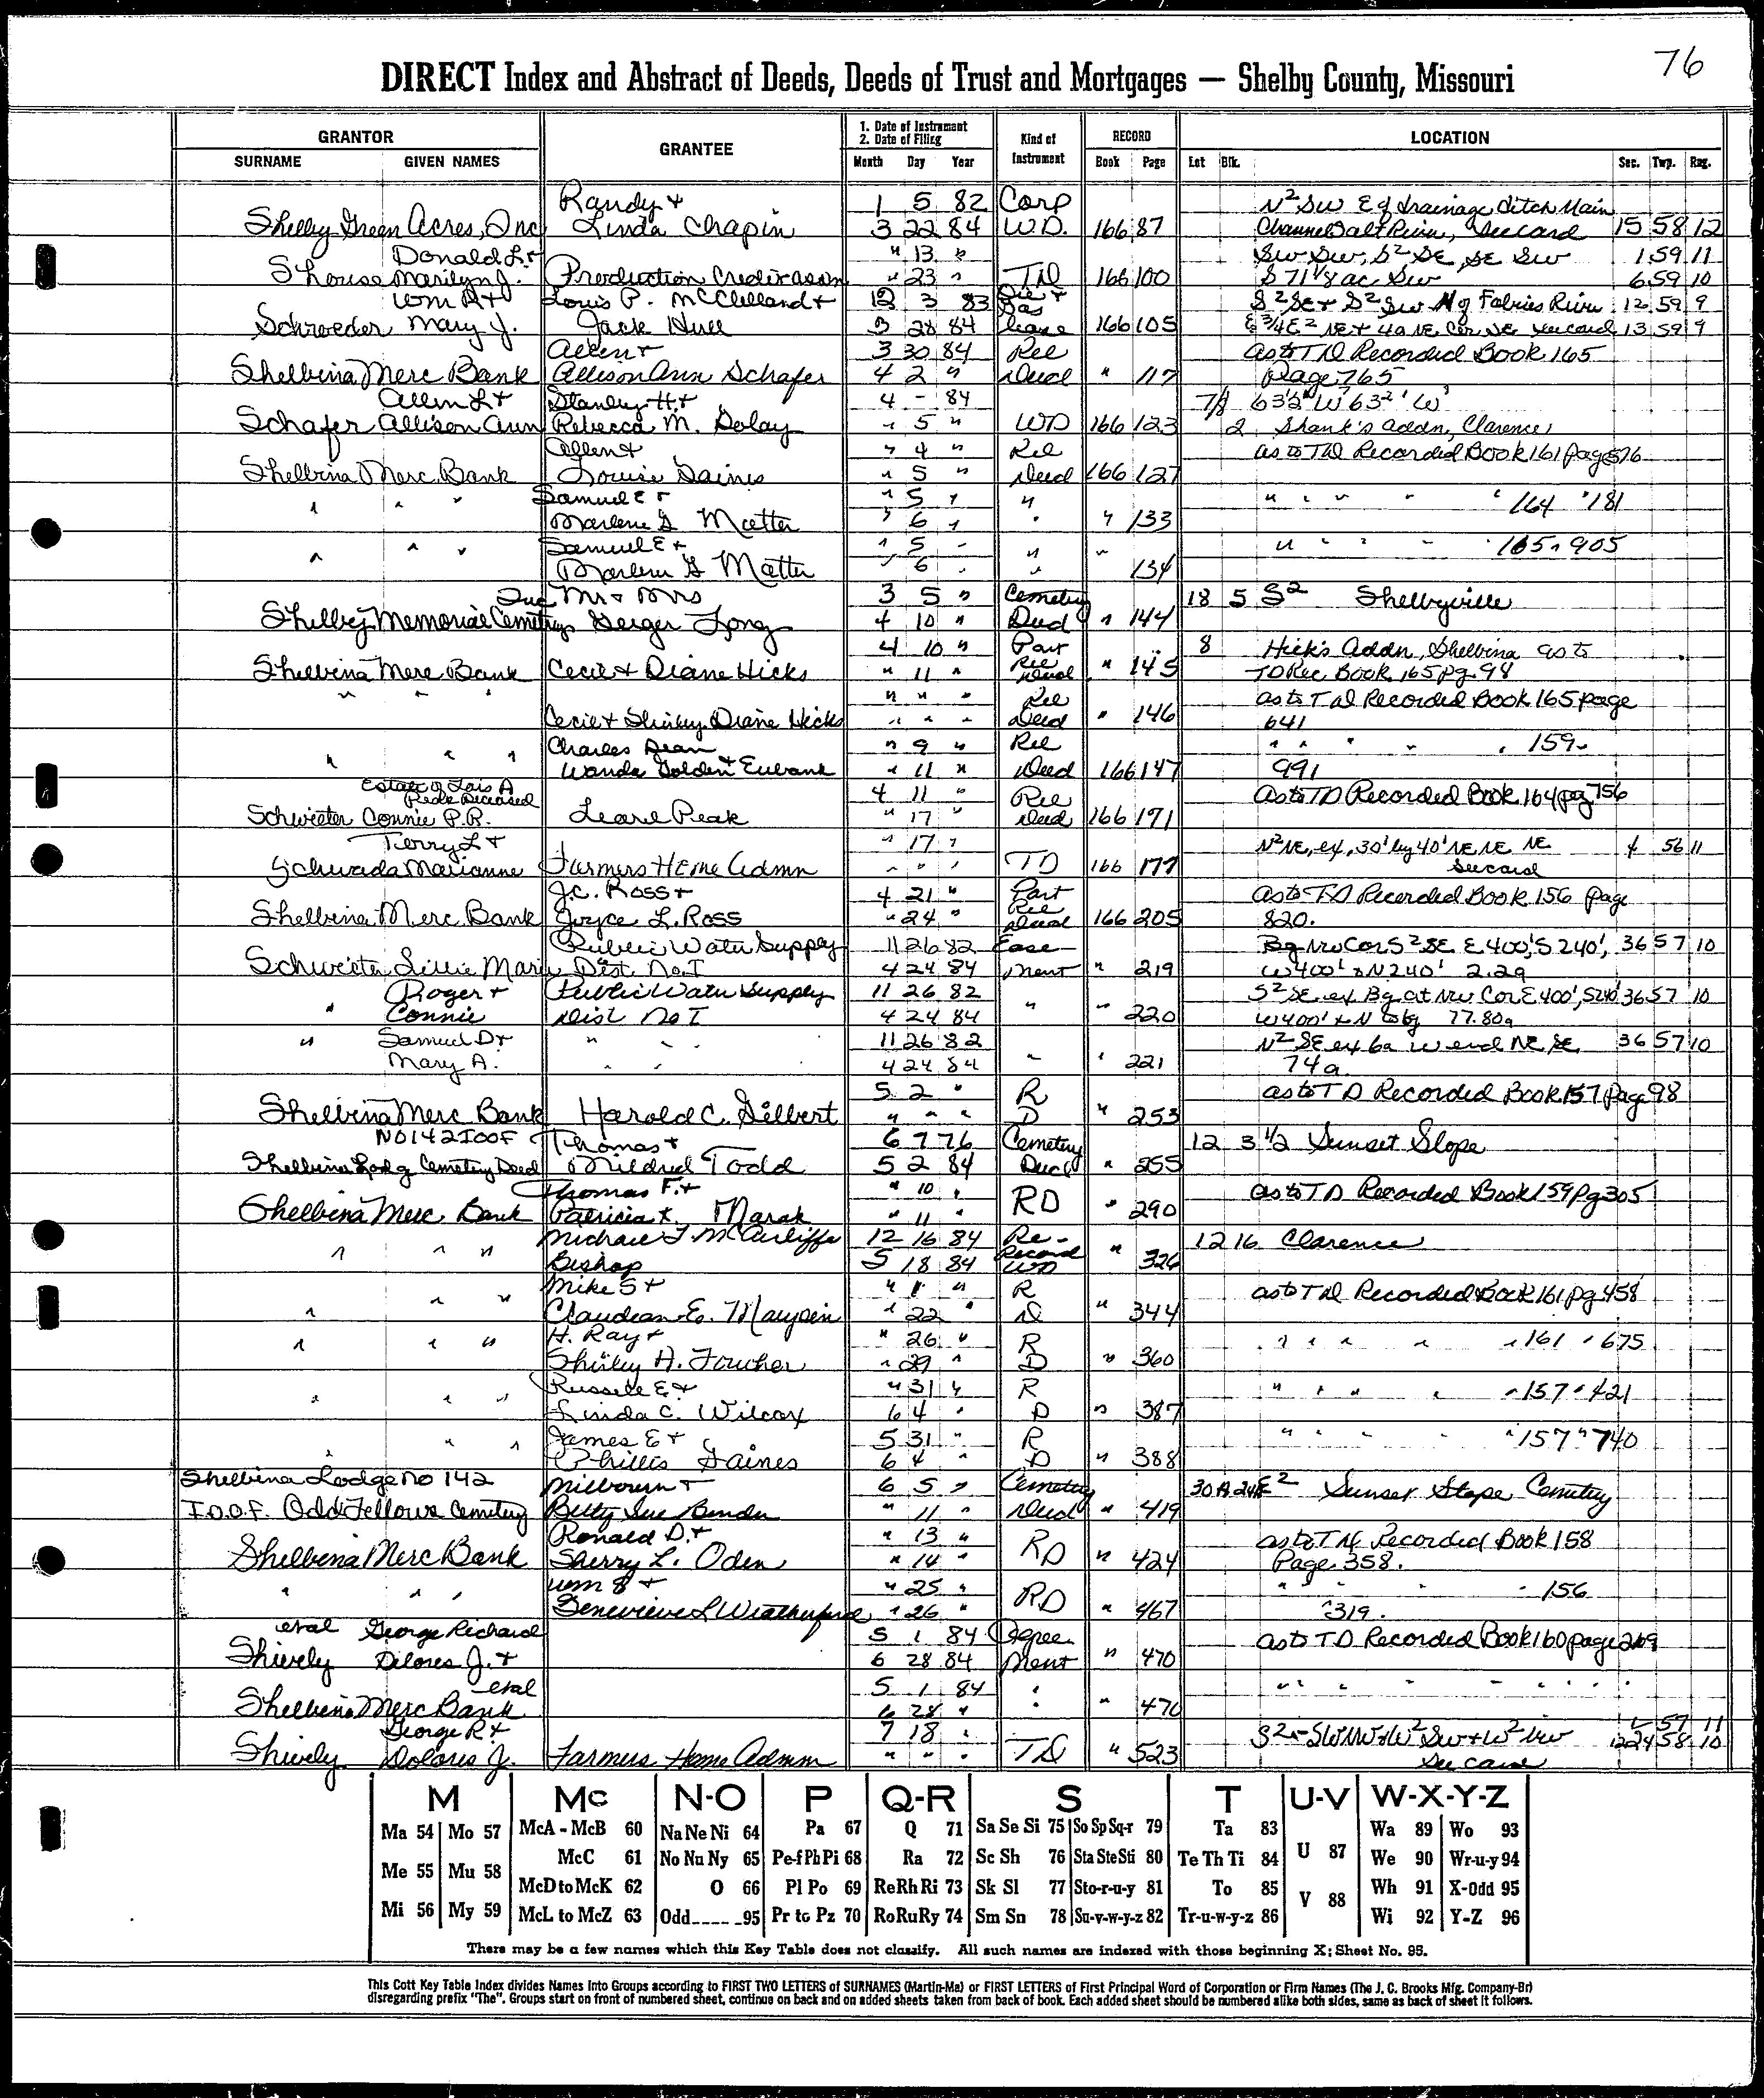 76
DIRECT Index and Abstract of Deeds, Deeds of Trust and Mortgages — Shelby County, Missouri
GRANTOR GRANTEE 1. Date of Instrument 2. Date of Filing Kind of Instrument RECORD LOCATION
SURNAME GIVEN NAMES Month Day Year Book Page Lot Blk. Sec. Twp. Rng.
Randy + 1 5 82 Corp N² SW E of drainage ditch Main
Shelby Green Acres, Inc Linda Chapin 3 22 84 W.D. 166 87 Channel Salt River, See card 15 58 12
Donald L. + " 13 " SW SW, S² SE, SE SW 1 59 11
Shouse Marilyn J. Production Credit Assn " 23 " TD 166 100 S 71 1/8 ac SW 6 59 10
Wm R + Louis P. McClelland + 12 3 83 Oil + Gas S² SE + S² SW N of Fabius River 12 59 9
Schroeder Mary J. Jack Hull 3 28 84 Lease 166 105 E 3/4 E² NE + 4a NE Cor SE See card 13 59 9
Allen + 3 30 84 Rel as to TD Recorded Book 165
Shelbina Merc Bank Allison Ann Schafer 4 2 " Deed " 117 Page 765
Allen L + Stanley H + 4 - 84 7/8 63½' W 63²' W
Schafer Allison Ann Rebecca M. Dolay " 5 " WD 166 123 2 Shank's Addn, Clarence
Allen + " 4 " Rel as to TD Recorded Book 161 page 576
Shelbina Merc. Bank Louise Gaines " 5 " Deed 166 127
" " " Samuel E + " 5 " " " " " " " 164 " 181
Marlene G Matter " 6 " " " 133
" " " Samuel E + " 5 " " " " " " " 165 " 905
Marlene G Matter " 6 " " 134
Inc Mr + Mrs 3 5 " Cemetery 18 5 S² Shelbyville
Shelby Memorial Cemetery Gerger Long 4 10 " Deed " 144
4 10 " Part 8 Hick's Addn, Shelbina as to
Shelbina Merc Bank Cecil + Diane Hicks " 11 " Rel Deed " 145 TD Rec Book 165 pg 98
" " " " " " Rel as to TD Recorded Book 165 page
Cecil + Shirley Diane Hicks " " " Deed " 146 641
Charles Dean " 9 " Rel " " " " " 159 "
" " " Wanda Golden + Eubank " 11 " Deed 166 147 991
Estate of Lois A Peak Deceased 4 11 " Rel as to TD Recorded Book 164 pg 756
Schwieter Connie P.R. Leavel Peak " 17 " Deed 166 171
Terry L + " 17 " N² NE, ex, 30' by 40' NE NE NE 4 56 11
Schwada Marianne Farmers Home Admn " " " TD 166 177 See card
J.C. Ross + 4 21 " Part as to TD Recorded Book 156 page
Shelbina Merc Bank Joyce L. Ross " 24 " Rel Deed 166 205 820.
Public Water Supply 11 26 82 Ease- Bg NW Cor S² SE E 400', S 240', 36 57 10
Schwieter Lillie Marie Dist. No. I 4 24 84 ment " 219 W 400' x N 240' 2.2a
" Roger + Public Water Supply 11 26 82 " S² SE ex Bg at NW Cor E 400', S 240' 36 57 10
Connie Dist No I 4 24 84 " 220 W 400' x N to bg 77.80a
" Samuel D + " " 11 26 82 N² SE ex 6a W end NE SE 36 57 10
Mary A. " " 4 24 84 " " 221 74a
5 2 " R as to TD Recorded Book 157 page 98
Shelbina Merc Bank Harold C. Gilbert " " " D " 253
No 142 IOOF Thomas + 6 7 76 Cemetery 12 3 ½ Sunset Slope
Shelbina Lodg Cemetery Deed Mildred Todd 5 2 84 Deed " 255
Thomas F. + " 10 " RD as to TD Recorded Book 159 pg 305
Shelbina Merc Bank Patricia K. Marak " 11 " " 290
" " " Michael F McAuliffe 12 16 84 Re- 12 16 Clarence
Bishop 5 18 84 Record WD " 326
Mike S + " 1 " R as to TD Recorded Book 161 pg 458
" " " Claudean E. Maupin " 22 " D " 344
" " " H. Ray + " 26 " R " " " " " 161 " 675
Shirley A. Foucher " 29 " D " 360
" " " Russell E + " 31 " R " " " " " 157 " 421
Linda C. Wilcox 6 4 " D " 387
" " " James E + 5 31 " R " " " " " 157 " 740
Phillis Gaines 6 4 " D " 388
Shelbina Lodge No 142 Milbourn + 6 5 " Cemetery 30 A 24 E² Sunset Slope Cemetery
I.O.O.F. Odd Fellows Cemetery Betty Sue Bender " 11 " Deed " 419
Ronald D. + " 13 " RD as to TD Recorded Book 158
Shelbina Merc Bank Sherry L. Oden " 14 " " 424 Page 358.
" " " Wm S + " 25 " RD " " " " 156
Genevieve L Weatherford " 26 " " 467 " 319.
etal George Richard 5 1 84 Agree as to TD Recorded Book 160 page 269
Shively Dilores J. + 6 28 84 ment " 470
etal 5 1 84 " " " " " " " " "
Shelbina Merc Bank 6 28 " " " 470
George R + 7 18 " S² - SW NW + W² SW + W² NW 57 11
Shively Dolores J. Farmers Home Admn " " " TD " 523 See card 58 10
M Mc N-O P Q-R S T U-V W-X-Y-Z
Ma 54 Mo 57 McA - McB 60 Na Ne Ni 64 Pa 67 Q 71 Sa Se Si 75 So Sp Sq-r 79 Ta 83 U 87 Wa 89 Wo 93
Me 55 Mu 58 McC 61 No Nu Ny 65 Pe-f Ph Pi 68 Ra 72 Sc Sh 76 Sta Ste Sti 80 Te Th Ti 84 We 90 Wr-u-y 94
McD to McK 62 O 66 Pl Po 69 Re Rh Ri 73 Sk Sl 77 Sto-r-u-y 81 To 85 V 88 Wh 91 X-Odd 95
Mi 56 My 59 McL to McZ 63 Odd 95 Pr to Pz 70 Ro Ru Ry 74 Sm Sn 78 Su-v-w-y-z 82 Tr-u-w-y-z 86 Wi 92 Y-Z 96
There may be a few names which this Key Table does not classify. All such names are indexed with those beginning X; Sheet No. 95.
This Cott Key Table Index divides Names Into Groups according to FIRST TWO LETTERS of SURNAMES (Martin-Ma) or FIRST LETTERS of First Principal Word of Corporation or Firm Names (The J. C. Brooks Mfg. Company-Br)
disregarding prefix "The". Groups start on front of numbered sheet, continue on back and on added sheets taken from back of book. Each added sheet should be numbered alike both sides, same as back of sheet it follows.